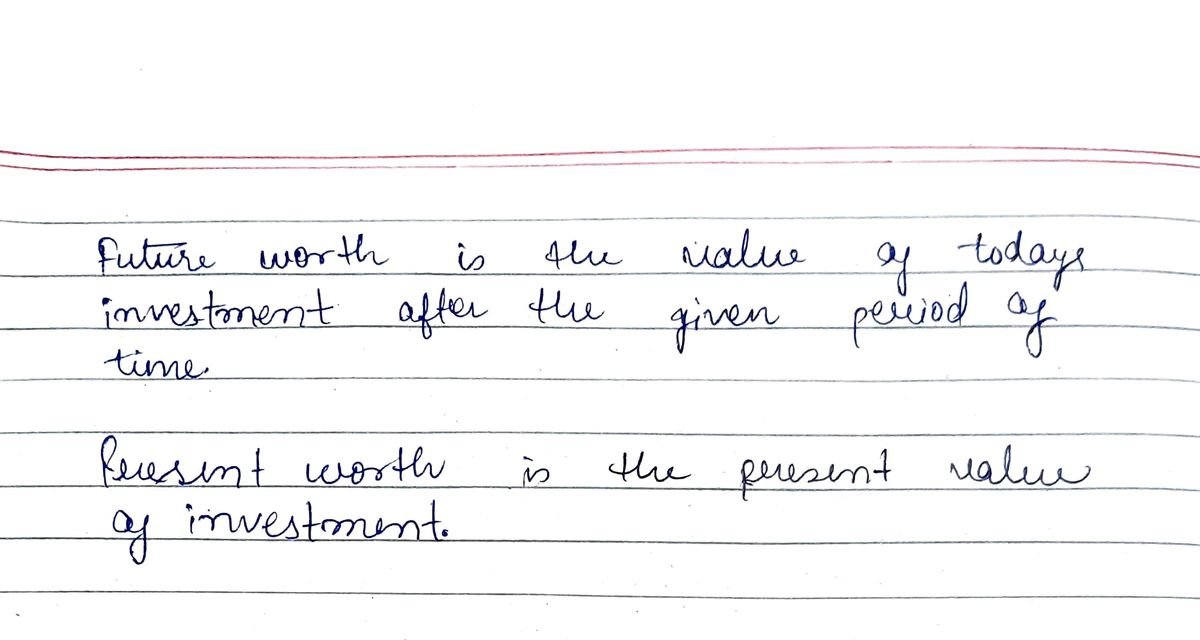 Future worth is the value of todays
investment after the given period of
time.
Present worth is the present value
of investment.